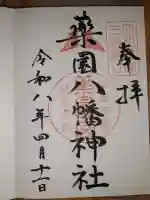 奉拝
薬園八幡神社
令和八年四月十一日